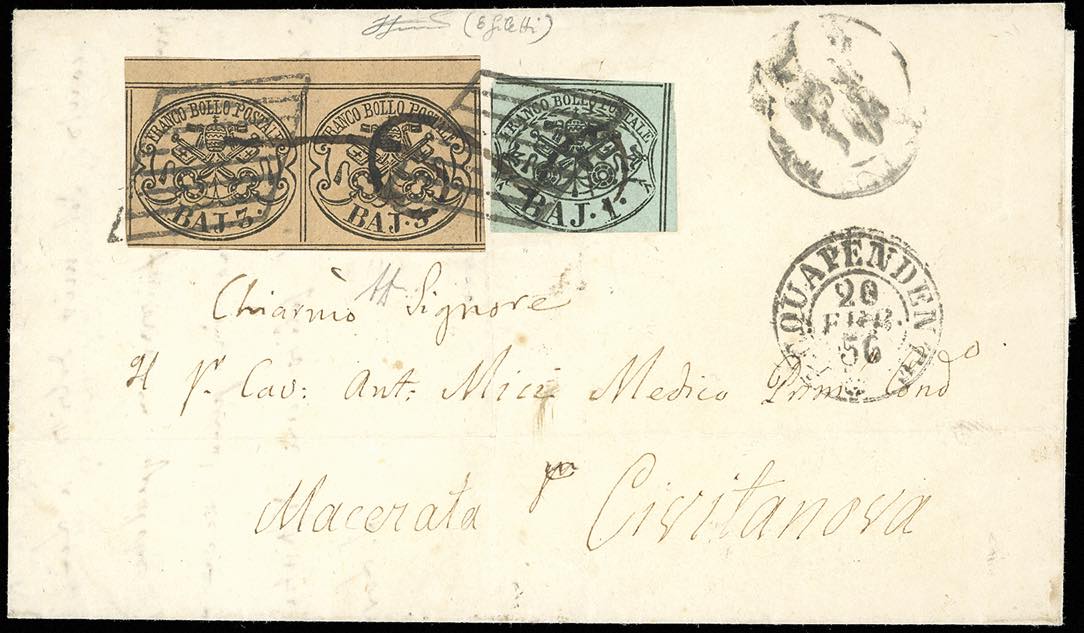 (E Giletti)
FRANCO BOLLO POSTALE
BAJ. 3.
FRANCO BOLLO POSTALE
BAJ. 3.
FRANCO BOLLO POSTALE
BAJ. 1.
ACQUAPENDENTE
20
FEBR.
56
Chiarmo Signore
Il Sr. Cav: Ant. Mici Medico Primo Condo
Macerata pr Civitanova